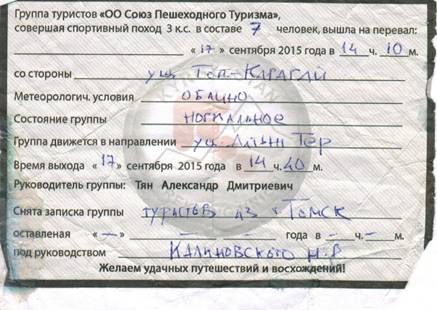 Группа туристов «ОО Союз Пешеходного Туризма»,
совершая спортивный поход 3 к.с. в составе 7 человек, вышла на перевал:
« 17 » сентября 2015 года в 14 ч. 10 м.
со стороны ущ. Топ-Карагай
Метеорологич. условия облачно
Состояние группы нормальное
Группа движется в направлении ущ. Тор
Время выхода « 17 » сентября 2015 года в 14 ч. 40 м.
Руководитель группы: Тян Александр Дмитриевич
Снята записка группы туристов из г. Томск
оставленая « – » года в – ч. – м.
под руководством Калиновского
Желаем удачных путешествий и восхождений!